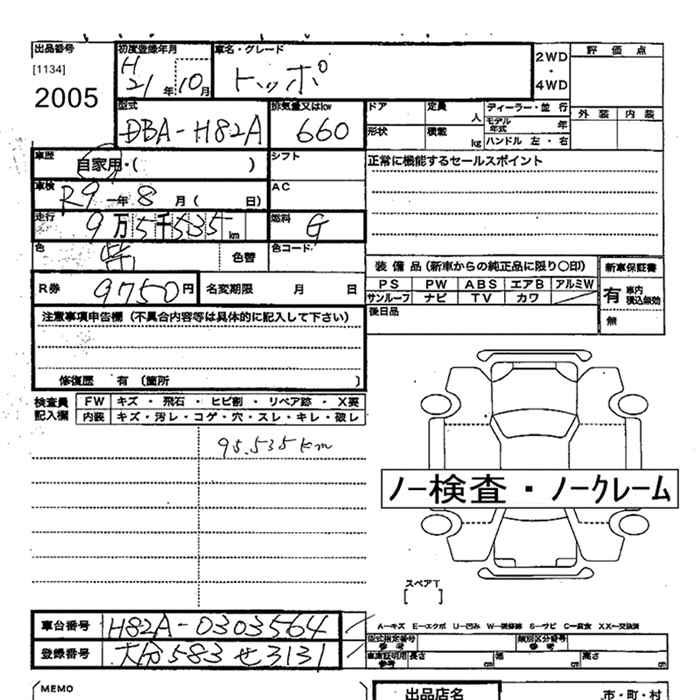 出品番号 初度登録年月 車名・グレード 2WD 評価点
[1134] H トッポ ・
2005 21年10月 4WD 外装 内装
型式 排気量又はkw ドア 定員 人 ディーラー・並行
DBA-H82A 660 形状 積載 kg モデル年式 年
ハンドル 左・右
車歴 自家用・( ) シフト 正常に機能するセールスポイント
車検 R9年8月( 日) AC
走行 9万5千535km 燃料 G
色 紫 色替 色コード 装備品(新車からの純正品に限り○印) 新車保証書
R券 9750円 名変期限 月 日 PS PW ABS エアB アルミW 有 車内積込無効
サンルーフ ナビ TV カワ 無
注意事項申告欄(不具合内容等は具体的に記入して下さい) 後日品
修復歴 有〔箇所 〕
検査員記入欄 FW キズ・飛石・ヒビ割・リペア跡・X要
内装 キズ・汚レ・コゲ・穴・スレ・キレ・破レ
95.535km
ノー検査・ノークレーム
スペアT
[ ]
車台番号 H82A-0303564 A-キズ E-エクボ U-凹み W-補修跡 S-サビ C-腐食 XX-交換済
型式指定番号 参考 類別区分番号 参考
登録番号 大分583せ3131 車庫証明用参考 長さ cm 幅 cm 高さ cm
MEMO 出品店名 市・町・村